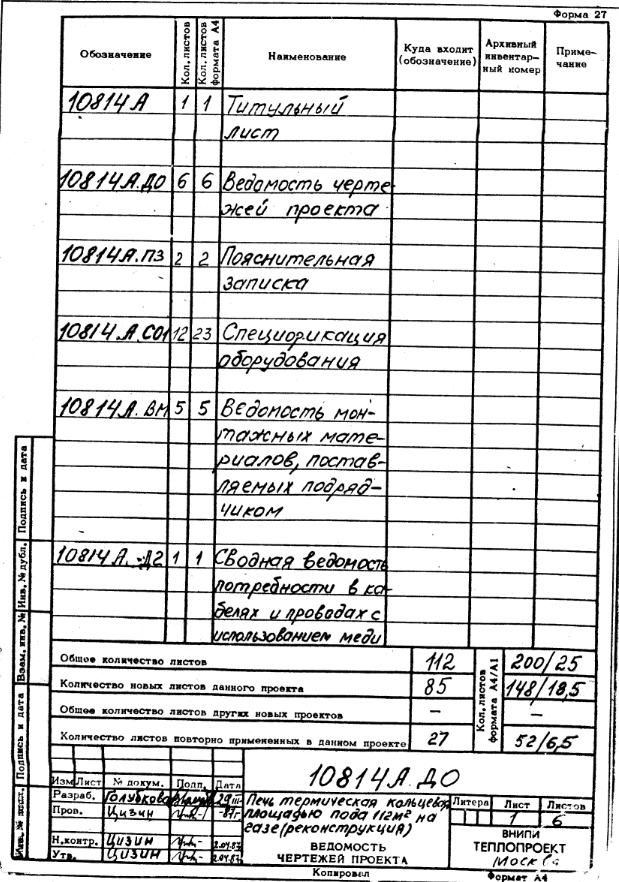 Форма 27
Обозначение
Кол. листов
Кол. листов формата А4
Наименование
Куда входит (обозначение)
Архивный инвентар-ный номер
Приме-чание
10814А 1 1 Титульный
лист
10814А.ДО 6 6 Ведомость черте-
жей проекта
10814А.ПЗ 2 2 Пояснительная
записка
10814.А.СО1 12 23 Спецификация
оборудования
10814А.ВМ 5 5 Ведомость мон-
тажных мате-
риалов, постав-
ляемых подряд-
чиком
10814А.-Д2 1 1 Сводная ведомость
потребности в ка-
белях и проводах с
использованием меди
Общее количество листов 112
Количество новых листов данного проекта 85
Общее количество листов других новых проектов –
Количество листов повторно примененных в данном проекте 27
Кол. листов формата А4/А1
200/25
148/18,5
–
52/6,5
Подпись и дата
Инв. № дубл.
Взам. инв. №
Подпись и дата
Инв. № подл.
10814А.ДО
Изм Лист № докум. Подп. Дата
Разраб. Голубкова 29 III
Пров. Цизин -87г.
Н.контр. Цизин 2.04.87
Утв. Цизин 2.04.87
Печь термическая кольцевая
площадью пода 112м² на
газе (реконструкция)
ВЕДОМОСТЬ
ЧЕРТЕЖЕЙ ПРОЕКТА
Литера Лист Листов
1 6
ВНИПИ
ТЕПЛОПРОЕКТ
Москва
Копировал
Формат А4